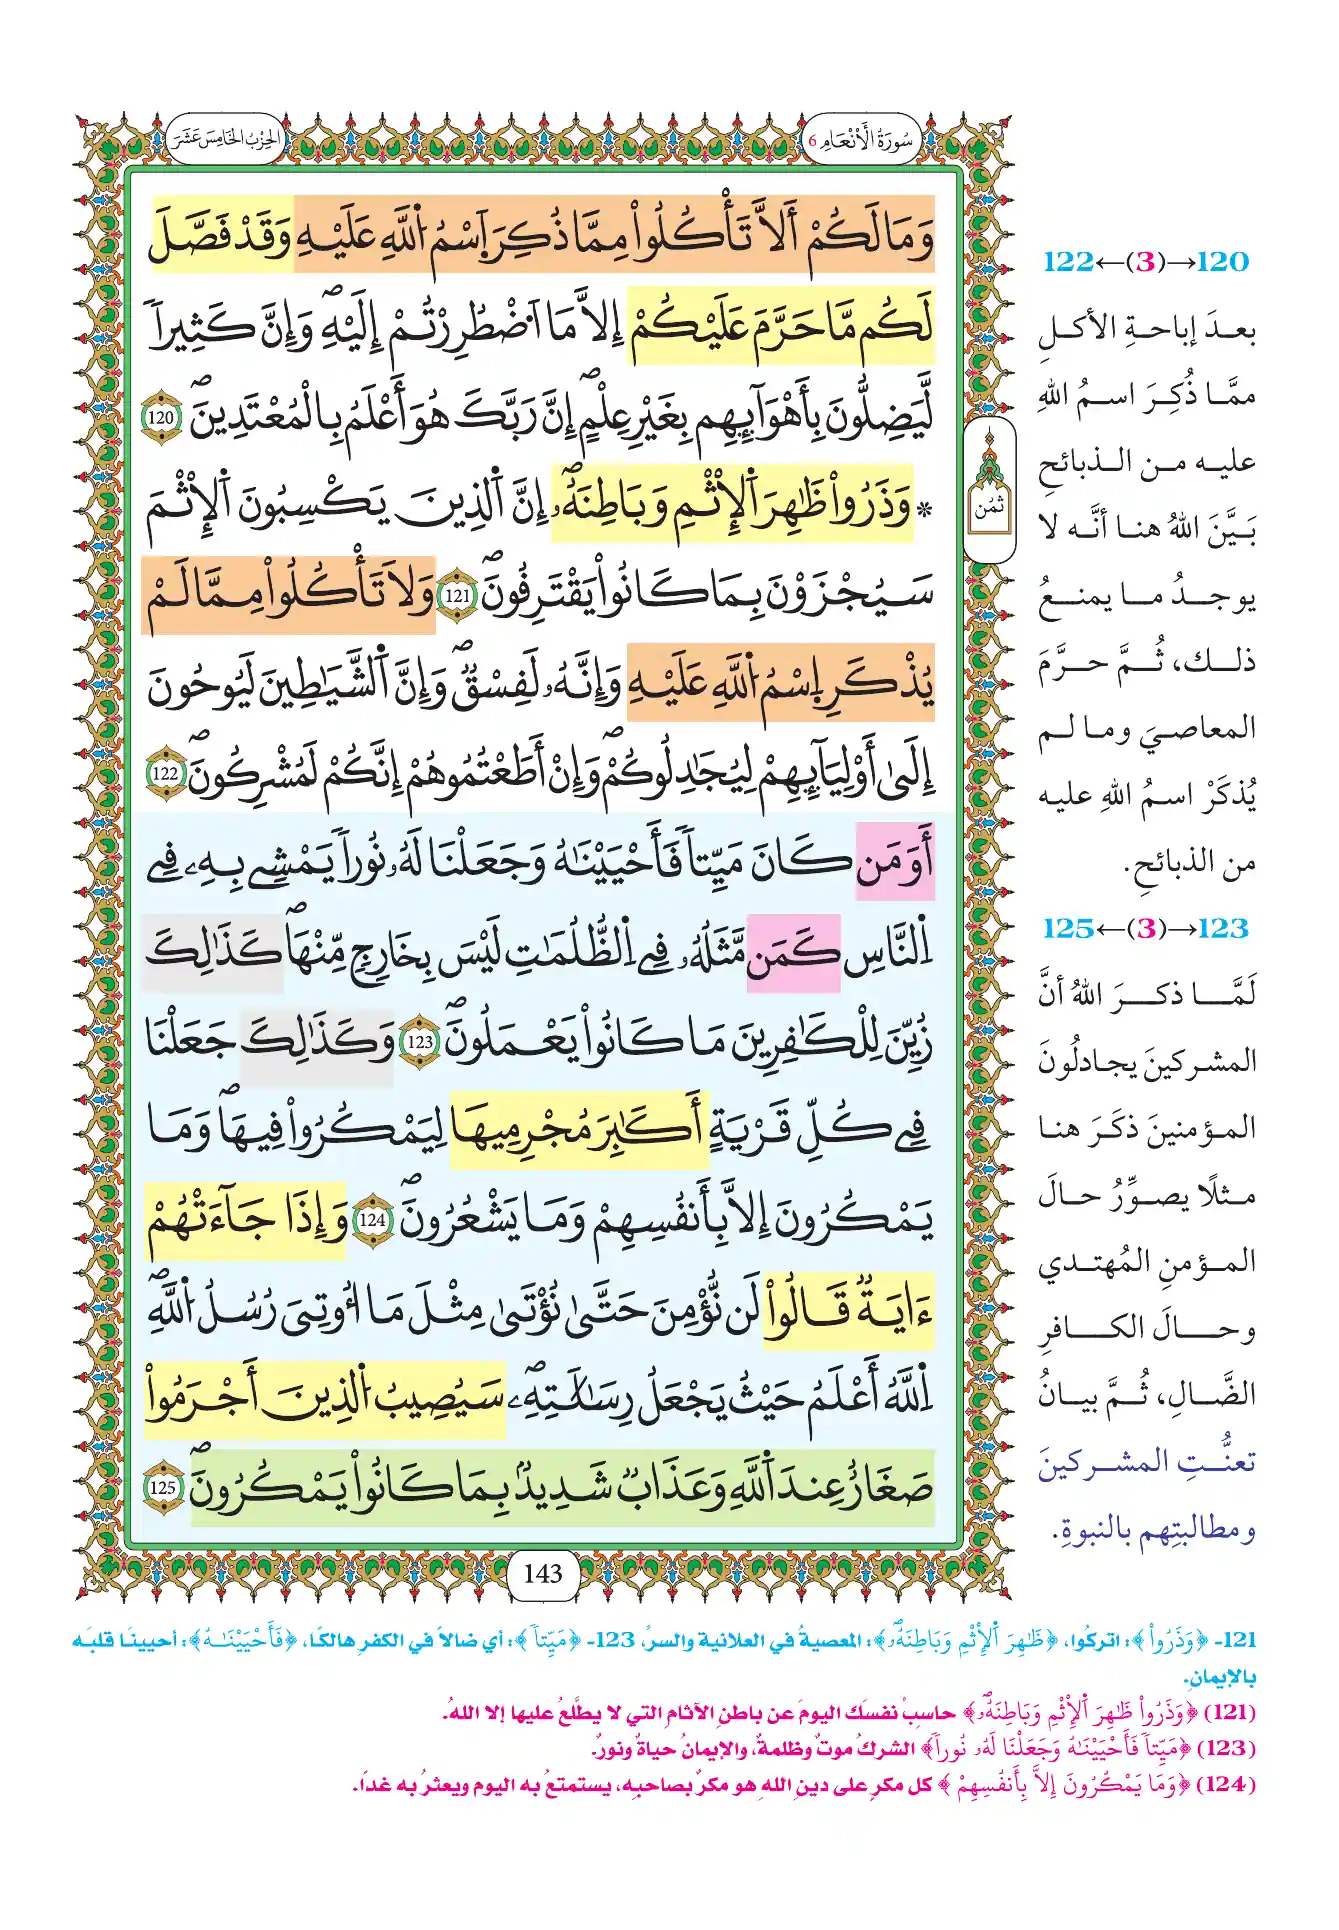 سُورَةُ الْأَنْعَامِ 6
الحِزْبُ الخَامِسَ عَشَرَ
وَمَا لَكُمْ أَلَّا تَأْكُلُواْ مِمَّا ذُكِرَ اَسْمُ اُللَّهِ عَلَيْهِ وَقَدْ فَصَّلَ
لَكُم مَّا حَرَّمَ عَلَيْكُمْ إِلَّا مَا اَضْطُرِرْتُمْ إِلَيْهِۖ وَإِنَّ كَثِيراً
لَّيَضِلُّونَ بِأَهْوَآئِهِم بِغَيْرِ عِلْمٍۖ إِنَّ رَبَّكَ هُوَ أَعْلَمُ بِالْمُعْتَدِينَۖ 120
* وَذَرُواْ ظَٰهِرَ اَلْإِثْمِ وَبَاطِنَهُۥۖ إِنَّ اَلذِينَ يَكْسِبُونَ اَلْإِثْمَ
سَيُجْزَوْنَ بِمَا كَانُواْ يَقْتَرِفُونَۖ 121 وَلَا تَأْكُلُواْ مِمَّا لَمْ
يُذْكَرِ اِسْمُ اُللَّهِ عَلَيْهِ وَإِنَّهُۥ لَفِسْقٌۖ وَإِنَّ اَلشَّيَٰطِينَ لَيُوحُونَ
إِلَىٰٓ أَوْلِيَآئِهِمْ لِيُجَٰدِلُوكُمْۖ وَإِنْ أَطَعْتُمُوهُمْ إِنَّكُمْ لَمُشْرِكُونَۖ 122
أَوَمَن كَانَ مَيِّتاً فَأَحْيَيْنَٰهُ وَجَعَلْنَا لَهُۥ نُوراً يَمْشِے بِهِۦ فِے
اِلنَّاسِ كَمَن مَّثَلُهُۥ فِے اِلظُّلُمَٰتِ لَيْسَ بِخَارِجٍ مِّنْهَاۖ كَذَٰلِكَ
زُيِّنَ لِلْكَٰفِرِينَ مَا كَانُواْ يَعْمَلُونَۖ 123 وَكَذَٰلِكَ جَعَلْنَا
فِے كُلِّ قَرْيَةٍ أَكَٰبِرَ مُجْرِمِيهَا لِيَمْكُرُواْ فِيهَاۖ وَمَا
يَمْكُرُونَ إِلَّا بِأَنفُسِهِمْ وَمَا يَشْعُرُونَۖ 124 وَإِذَا جَآءَتْهُمْ
ءَايَةٌ قَالُواْ لَن نُّؤْمِنَ حَتَّىٰ نُؤْتَىٰ مِثْلَ مَا أُوتِيَ رُسُلُ اُللَّهِۖ
اِللَّهُ أَعْلَمُ حَيْثُ يَجْعَلُ رِسَٰلَٰتِهِۦۖ سَيُصِيبُ اُلذِينَ أَجْرَمُواْ
صَغَارٌ عِندَ اَللَّهِ وَعَذَابٌ شَدِيدٌۢ بِمَا كَانُواْ يَمْكُرُونَۖ 125
ثمُن
143
120→(3)←122
بعدَ إباحةِ الأكلِ
ممَّا ذُكِرَ اسمُ اللهِ
عليه من الذبائحِ
بَيَّنَ اللهُ هنا أنَّه لا
يوجدُ ما يمنعُ
ذلك، ثُمَّ حرَّمَ
المعاصيَ وما لم
يُذكَرْ اسمُ اللهِ عليه
من الذبائحِ.
123→(3)←125
لَمَّا ذكرَ اللهُ أنَّ
المشركينَ يجادلُونَ
المؤمنينَ ذكَرَ هنا
مثلًا يصوِّرُ حالَ
المؤمنِ المُهتدي
وحالَ الكافرِ
الضَّالِ، ثُمَّ بيانُ
تعنُّتِ المشركينَ
ومطالبتِهم بالنبوةِ.
121- ﴿وَذَرُواْ﴾: اتركُوا، ﴿ظَٰهِرَ اَلْإِثْمِ وَبَاطِنَهُۥۖ﴾: المعصيةُ في العلانية والسرِّ، 123- ﴿مَيِّتاً﴾: أي ضالاً في الكفرِ هالكًا، ﴿فَأَحْيَيْنَٰهُ﴾: أحيينَا قلبَه
بالإيمانِ.
(121) ﴿وَذَرُواْ ظَٰهِرَ اَلْإِثْمِ وَبَاطِنَهُۥۖ﴾ حاسِبْ نفسَك اليومَ عن باطنِ الآثامِ التي لا يطَّلعُ عليها إلا اللهُ.
(123) ﴿مَيِّتاً فَأَحْيَيْنَٰهُ وَجَعَلْنَا لَهُۥ نُوراً﴾ الشركُ موتٌ وظلمةٌ، والإيمانُ حياةٌ ونورٌ.
(124) ﴿وَمَا يَمْكُرُونَ إِلَّا بِأَنفُسِهِمْ﴾ كل مكرٍ على دينِ اللهِ هو مكرٌ بصاحبِه، يستمتعُ به اليوم ويعثرُ به غداً.